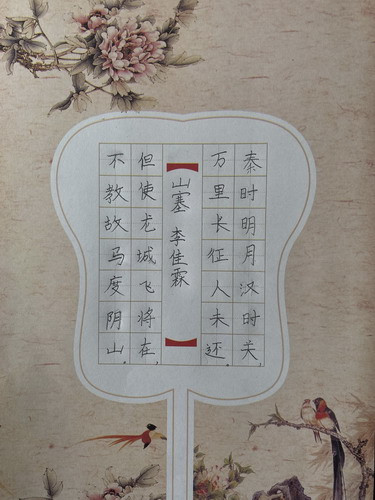 秦时明月汉时关，
万里长征人未还。
山塞 李佳霖
但使龙城飞将在，
不教故马度阴山。